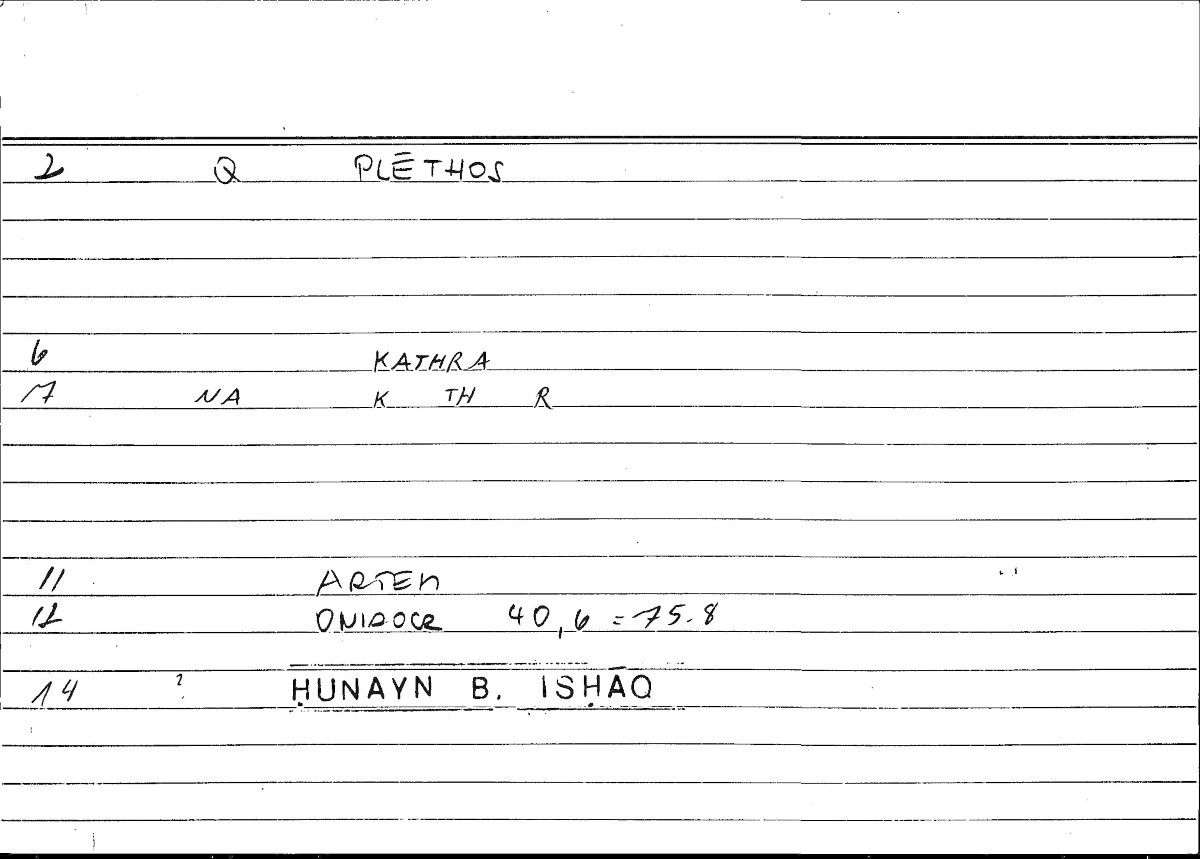 2 Q PLĒTHOS
6 KATHRA
7 NA K TH R
11 ARTEM
12 ONIROCR 40,6 = 75.8
14 ? ḤUNAYN B. ISḤĀQ